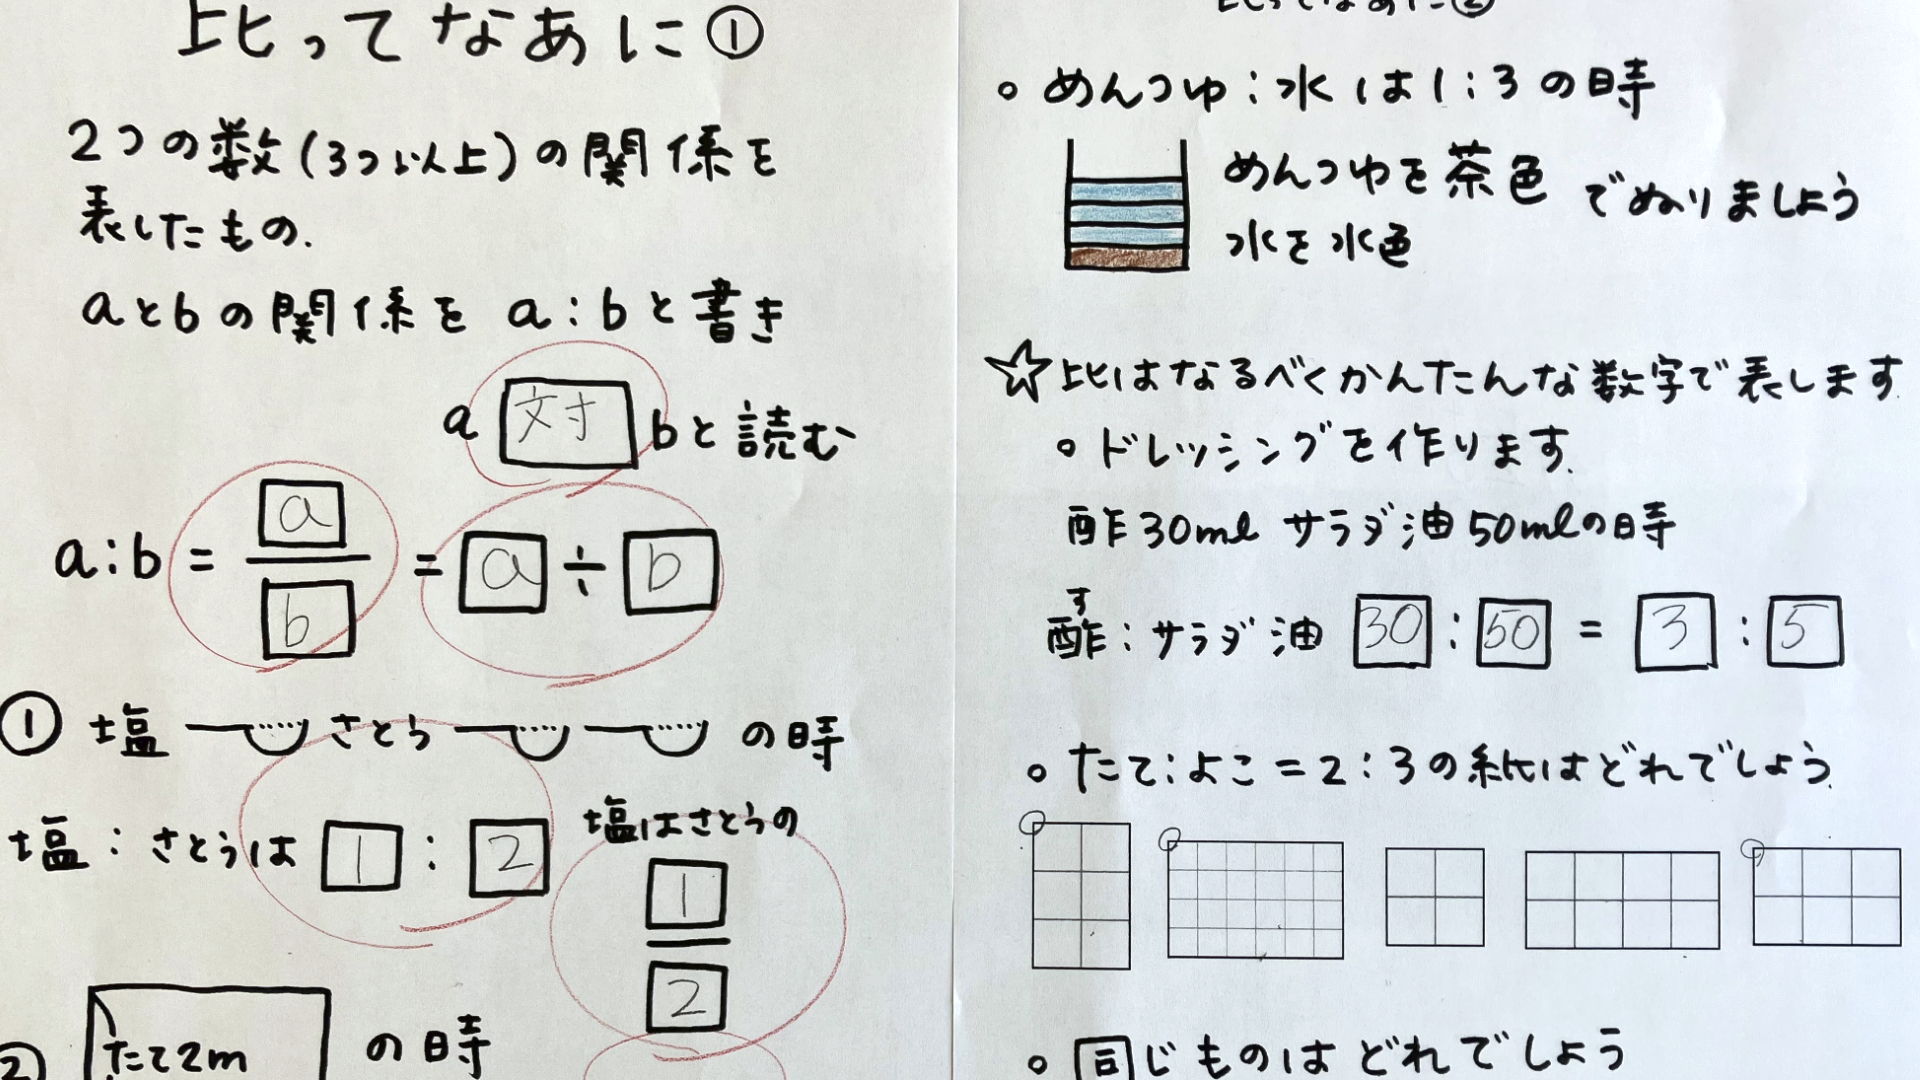 比ってなあに①
2つの数(3つ以上)の関係を
表したもの.
aとbの関係を a:bと書き
a 対 bと読む
a:b = a/b = a ÷ b
① 塩 さとう の時
塩:さとうは 1 : 2
塩はさとうの
1
2
② たて2m の時
比ってなあに②
○ めんつゆ:水は1:3の時
めんつゆを茶色 でぬりましょう
水を水色
☆比はなるべくかんたんな数字で表します.
○ ドレッシングを作ります.
酢30ml サラダ油50mlの時
す
酢:サラダ油 30 : 50 = 3 : 5
○ たて:よこ=2:3の紙はどれでしょう.
○ 同じものはどれでしょう